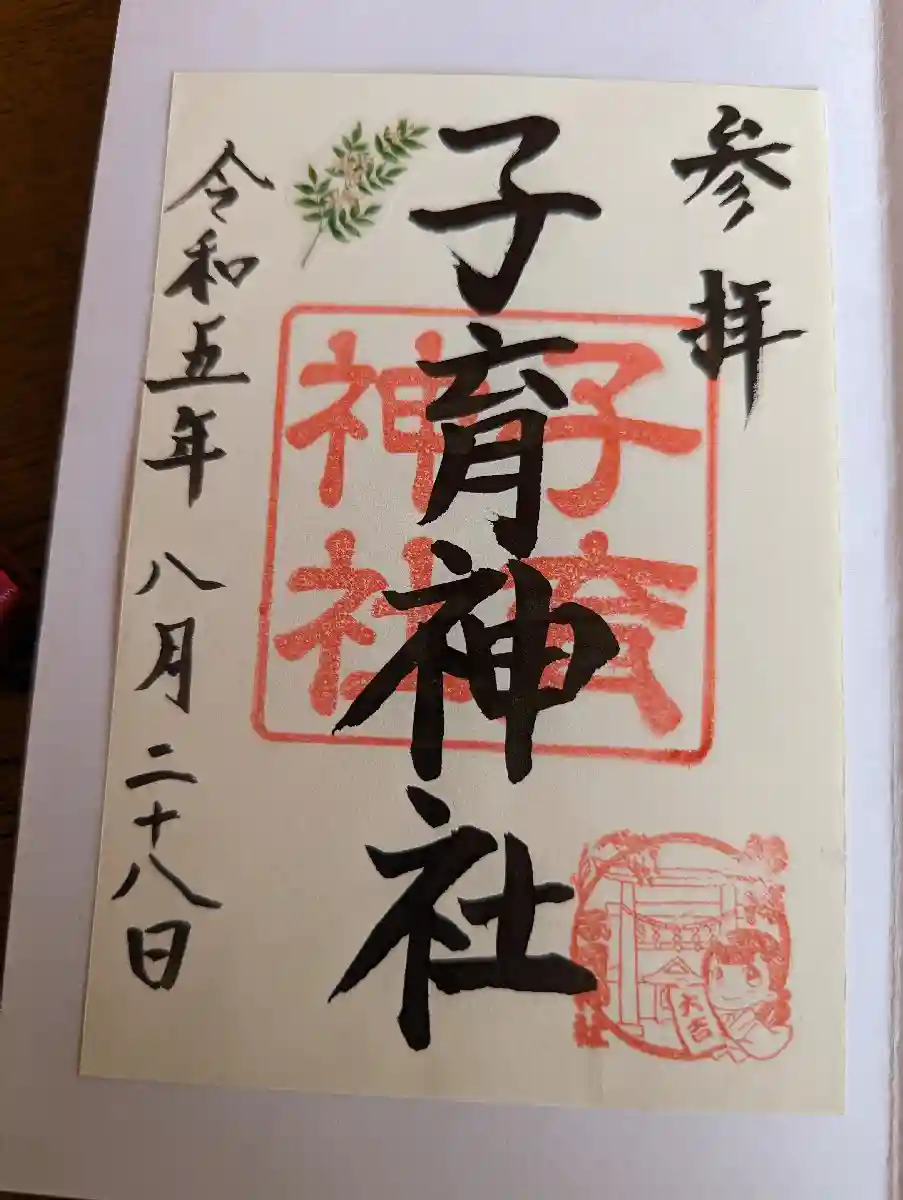 参拝
子育神社
子育
神社
令和五年 八月 二十八日
大吉